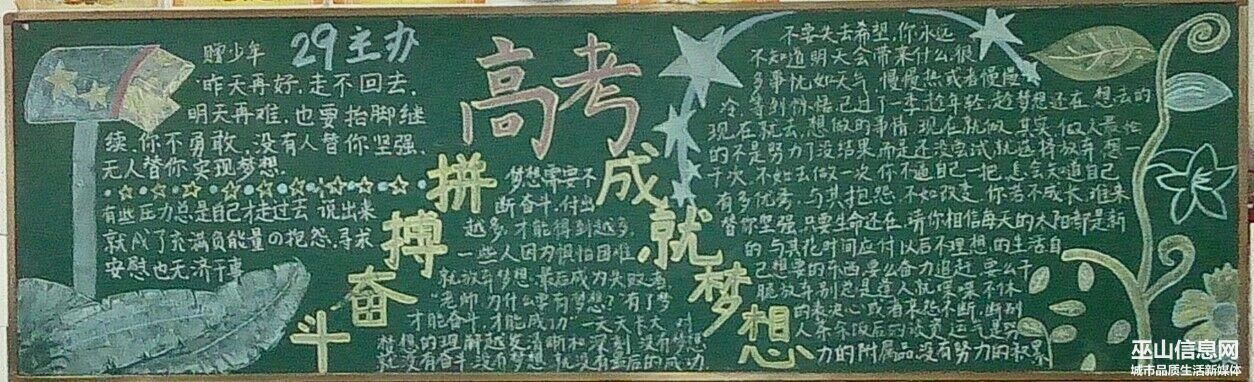 赠少年
29主办
昨天再好,走不回去,
明天再难,也要抬脚继
续,你不勇敢,没有人替你坚强,
无人替你实现梦想.
有些压力总是自己才走过去 说出来
就成了充满负能量の抱怨,寻求
安慰也无济于事
高考
拼搏奋斗
成就梦想
梦想需要不
断奋斗,付出
越多,才能得到越多,
一些人因为惧怕困难
就放弃梦想,最后成为失败者
"老师,为什么要有梦想?"有了梦
才能奋斗,才能成功.一天天长大,对
梦想的理解越发清晰和深刻 没有梦想
就没有奋斗,没有梦想,就没有最后的成功.
不要失去希望,你永远
不知道明天会带来什么,很
多事忧如天气,慢慢热或者慢慢
冷,等到你悟,已过了一季,趁年轻,趁梦想还在 想去的
现在就去,想做的事情,现在就做,其实,做人最怕
的不是努力了没结果,而是还没尝试就选择放弃 想一
千次,不如去做一次 你不逼自己一把,怎会知道自己
有多优秀,与其抱怨,不如改变,你若不成长,谁来
替你坚强,只要生命还在,请你相信每天的太阳都是新
的 与其花时间应付以后不理想的生活自
己想要的东西要么奋力追赶,要么干
脆放弃别总是逢人就 不休
的表决心或者来怨不断,
人茶余饭后的谈资 运气是努
力的附属品,没有努力的积累
巫山信息网
城市品质生活新媒体